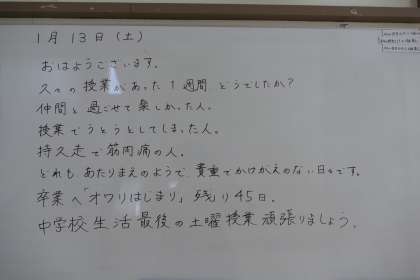 1月13日(土)
おはようございます。
久々の授業があった1週間、どうでしたか?
仲間と過ごせて楽しかった人。
授業でうとうとしてしまった人。
持久走で筋肉痛の人。
どれも、あたりまえのようで、貴重でかけがえのない日々です。
卒業へ「オワリはじまり」残り45日。
中学校生活最後の土曜授業頑張りましょう。